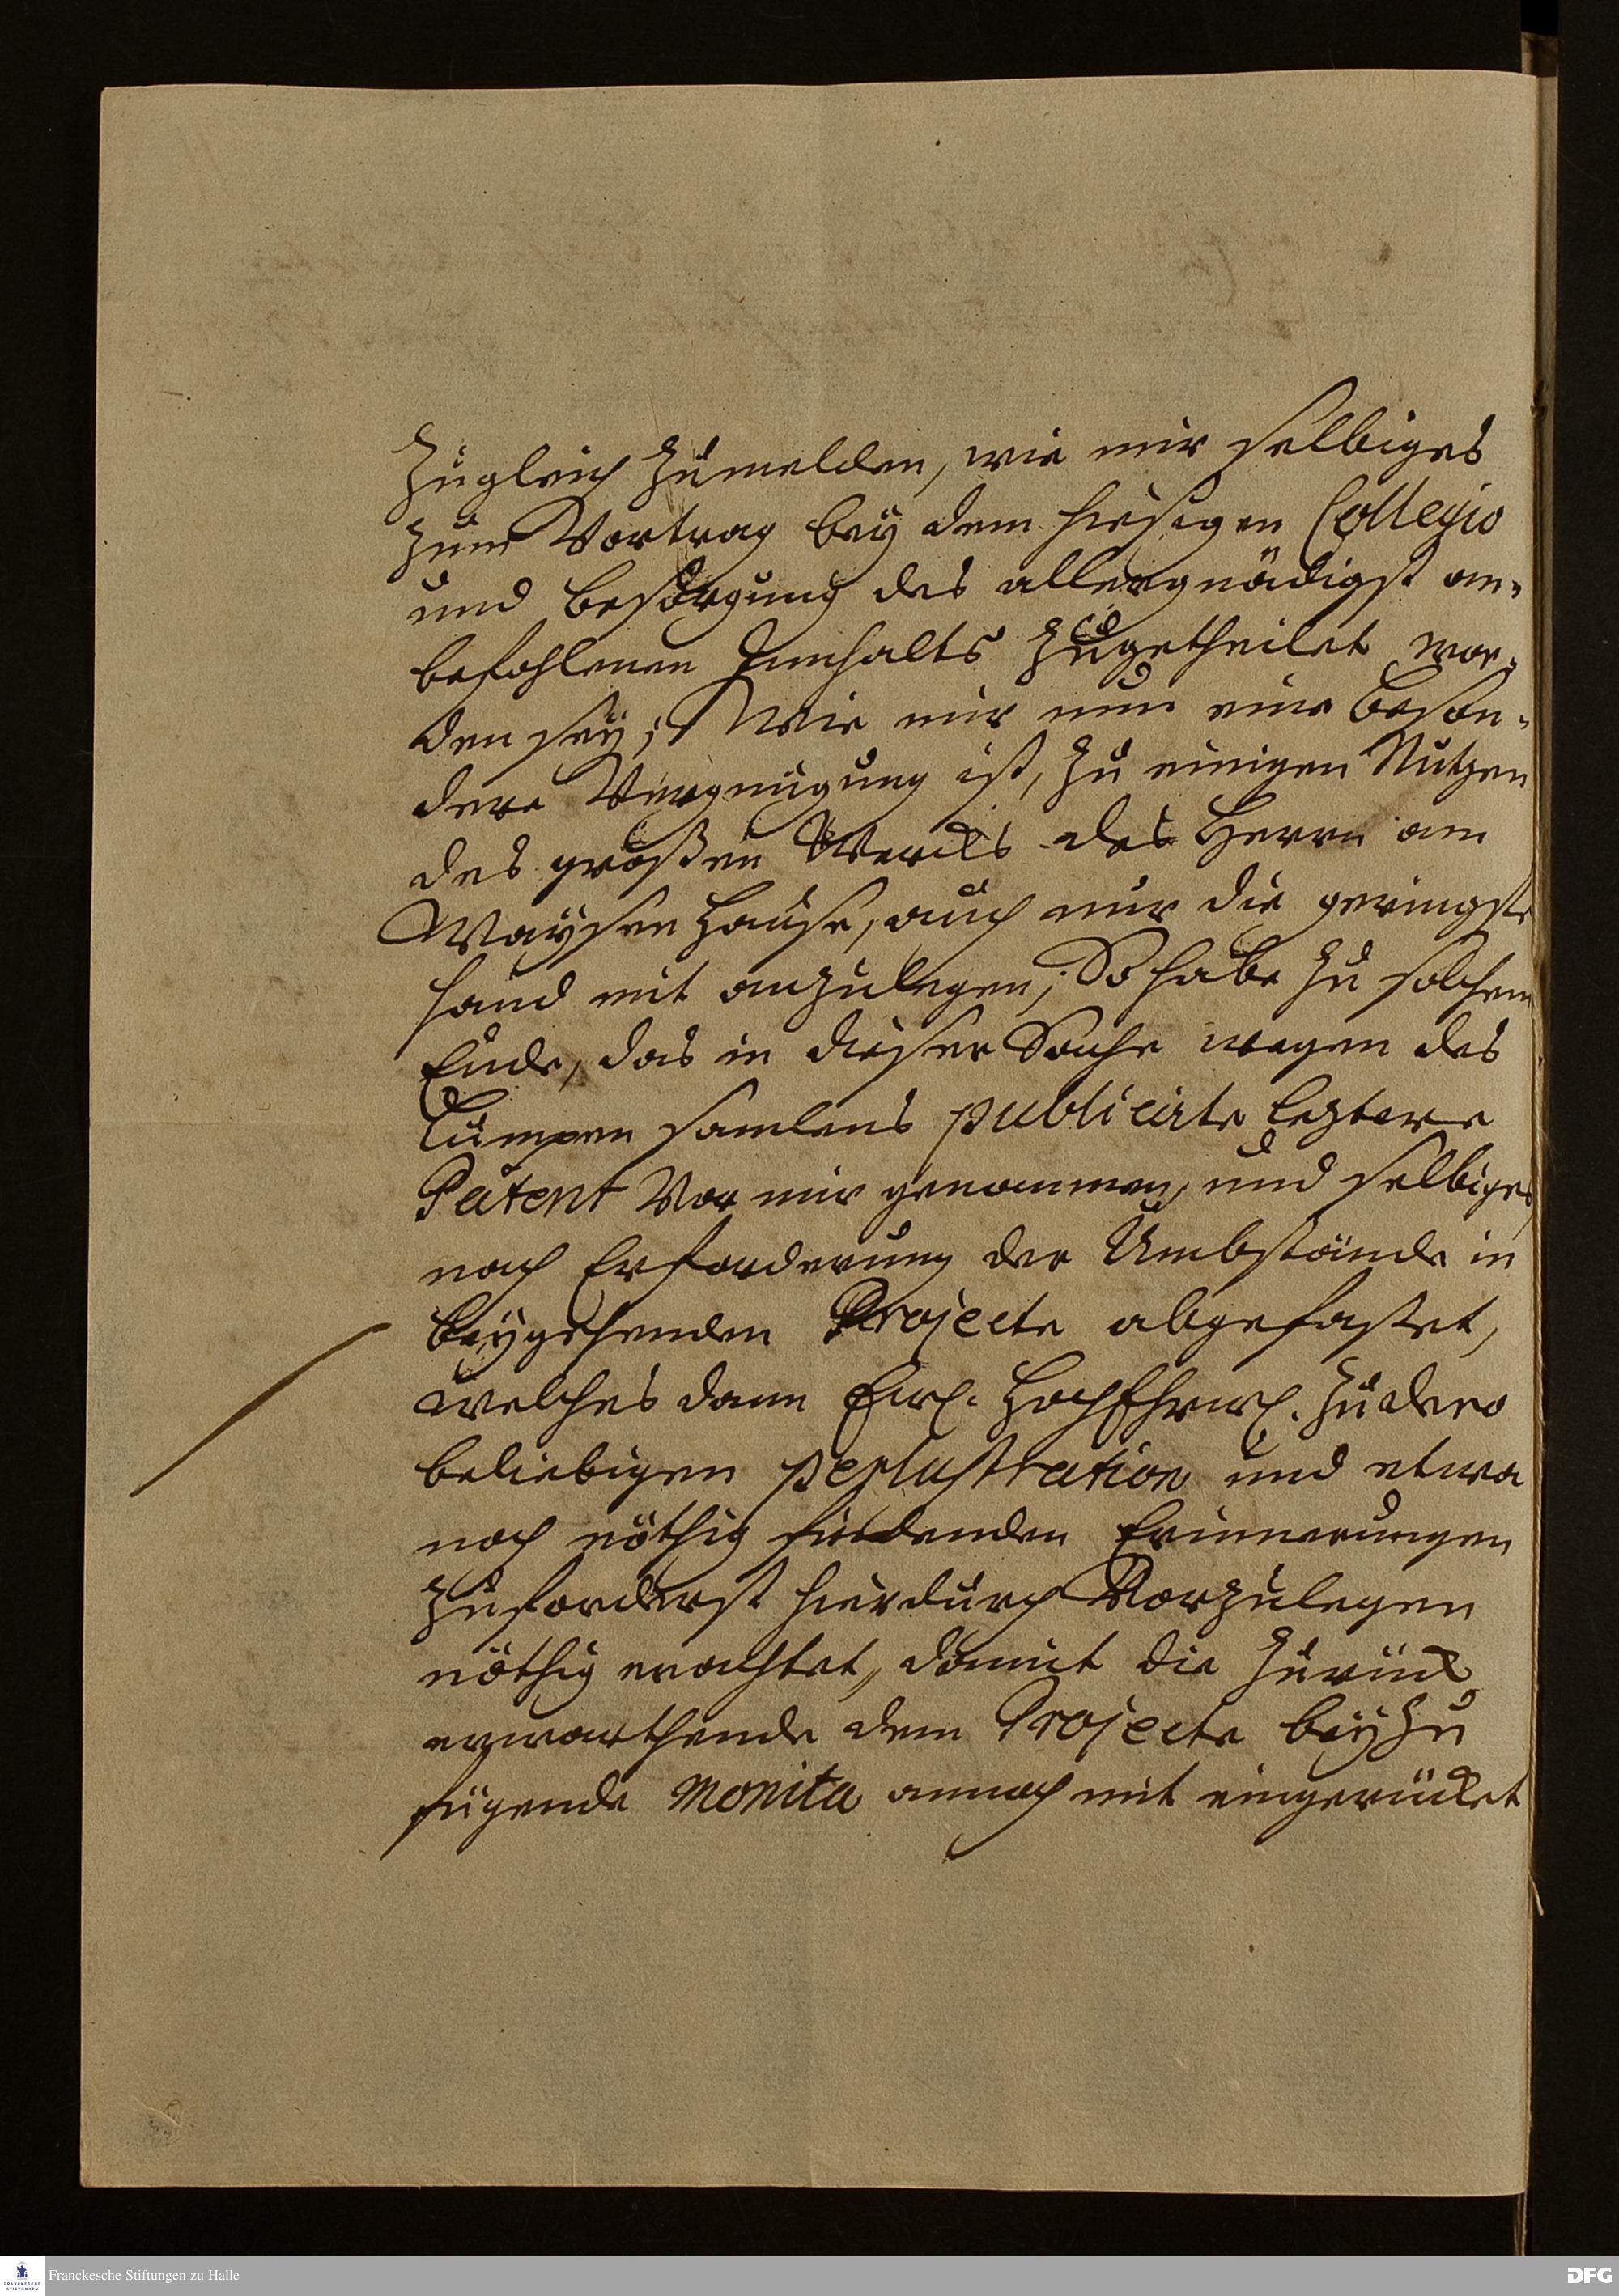 zugleich zumelden, wie mir selbiges
zum Vortrag bey dem hiesigen Collegio
und besorgung des allergnädigst an-
befohlenen Innhalts zugetheilet wor-
den sey; Wie mir nun eine beson-
dere Vergnügung ist, zu einigen Nutzen
des großen Wercks des Herrn am
Waysen Hause, auch nur die geringste
hand mit anzulegen; So habe zu solchem
Ende, das in dieser Sache wegen des
Lumpen samlens publicirte leztere
Patent Vor mir genommen, und selbiges
nach Erforderung der Umbstände in
beygehenden Projecte abgefasset,
welches dann Ew. HochEhrw. zu dero
beliebigen perlustration und etwa
noch nöthig findenden Erinnerungen
zuforderst hierdurch Vorzulegen
nöthig erachtet, damit die zurück
erwarthende dem Projecte beyzu
fügende Monita annoch mit eingerücket
Franckesche Stiftungen zu Halle
DFG